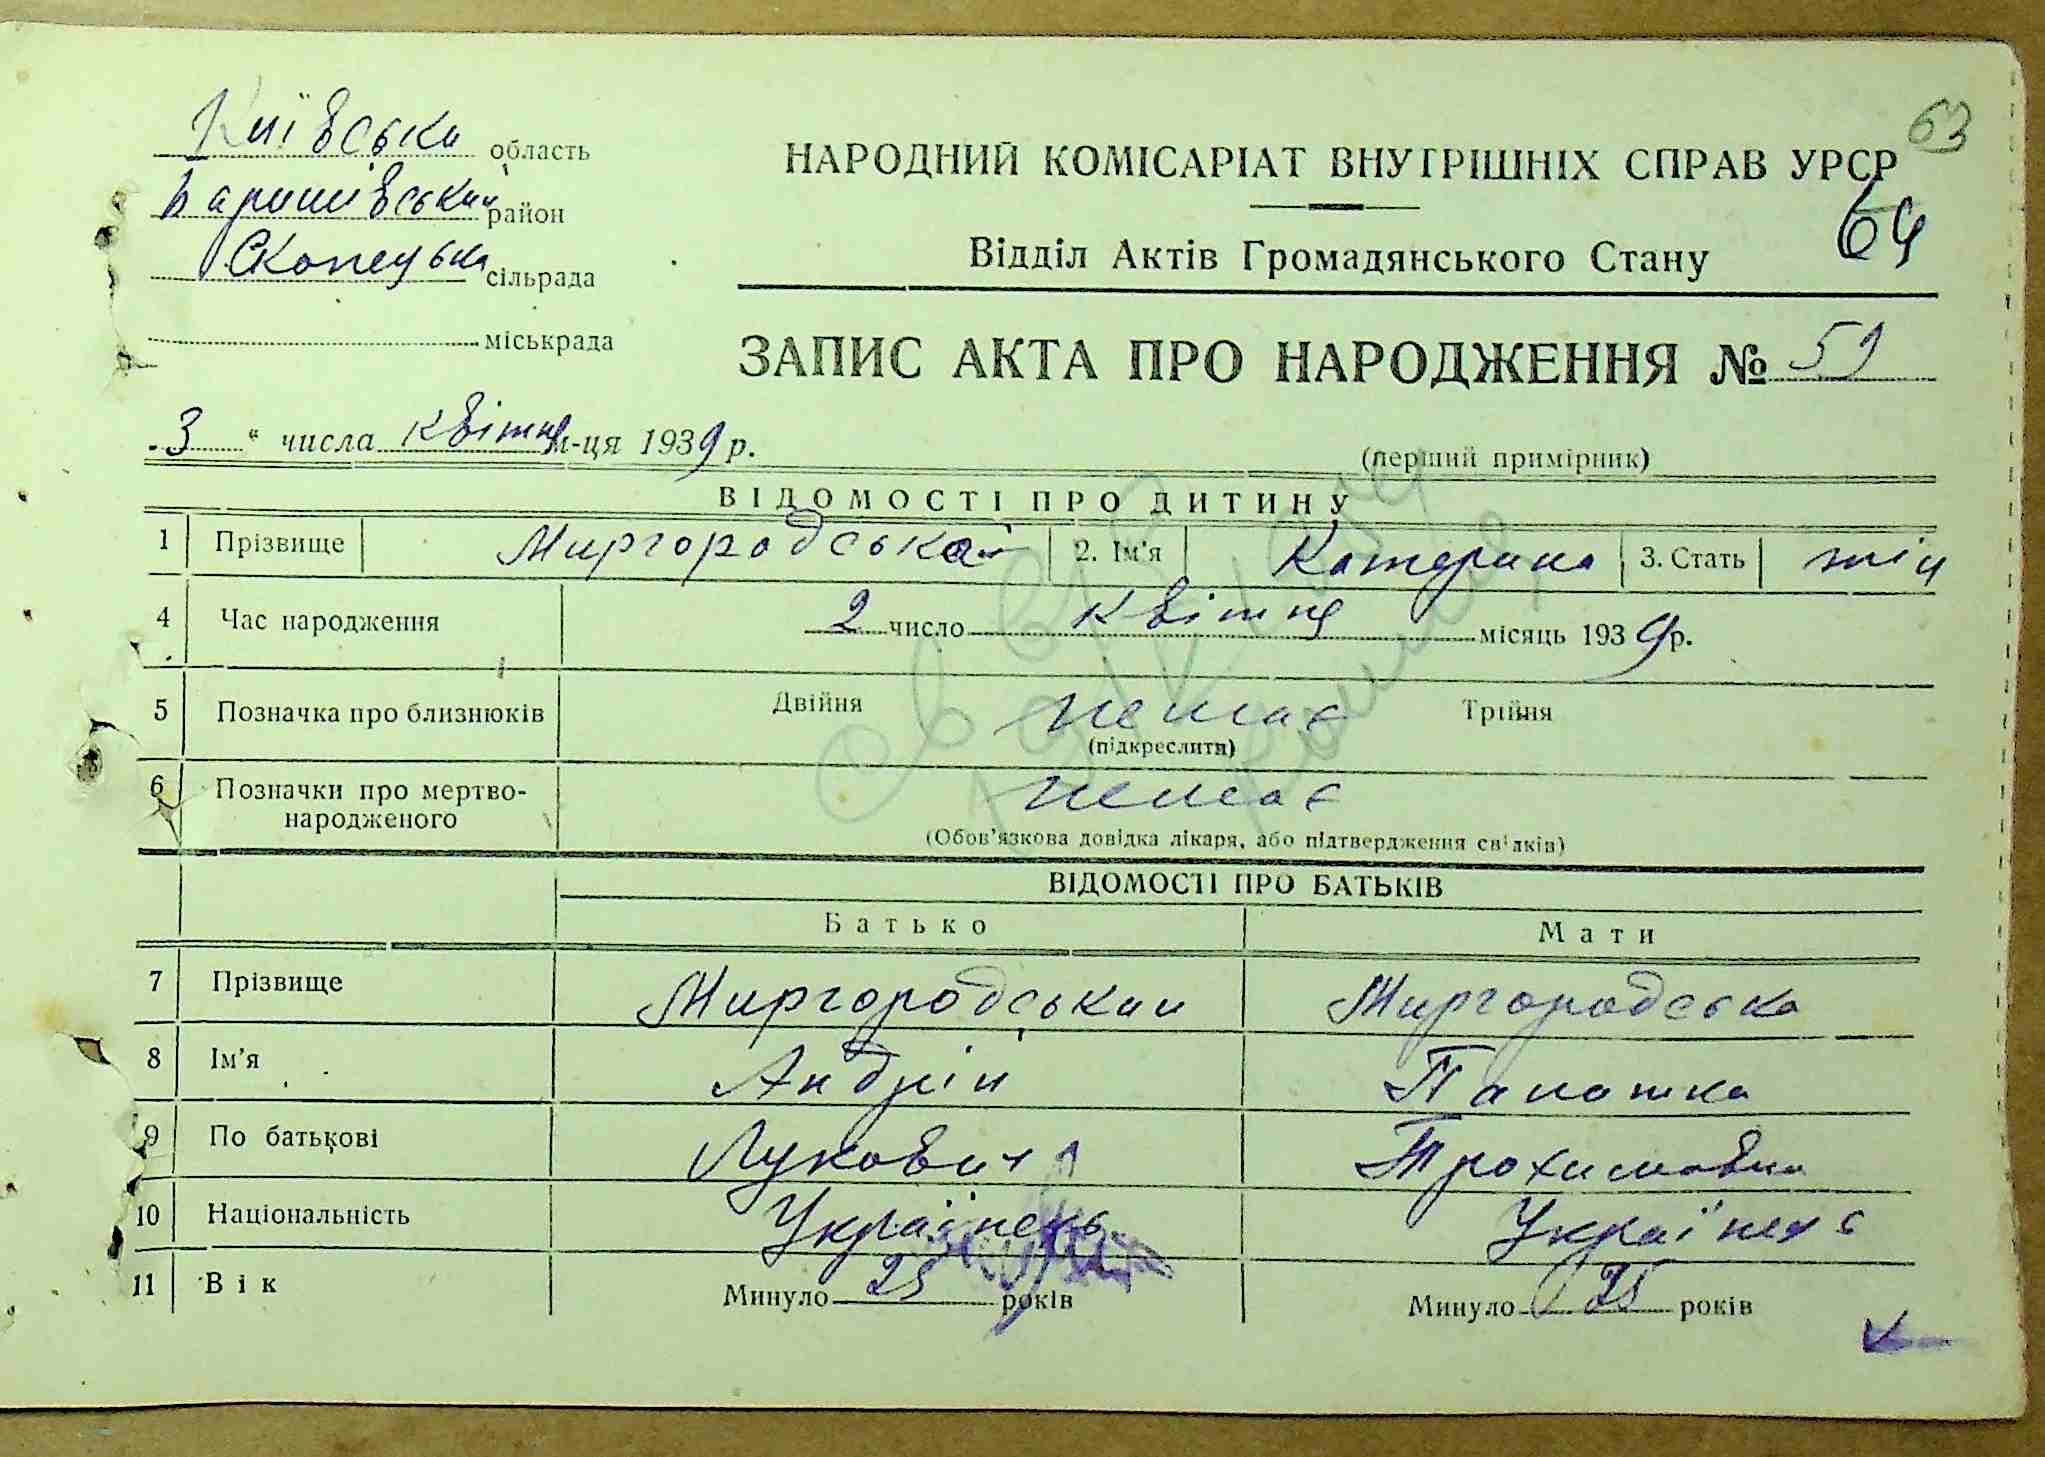 63
Київська область
НАРОДНИЙ КОМІСАРІАТ ВНУТРІШНІХ СПРАВ УРСР
Баришівський район
64
Скопецька сільрада
Відділ Актів Громадянського Стану
міськрада
ЗАПИС АКТА ПРО НАРОДЖЕННЯ № 59
3 " числа квітня м-ця 1939 р.
(перший примірник)
ВІДОМОСТІ ПРО ДИТИНУ
1 Прізвище Миргородська 2. Ім'я Катерина 3. Стать жін
4 Час народження 2 число квітня місяць 1939 р.
5 Позначка про близнюків Двійня немає Трійня
(підкреслити)
6 Позначки про мертво-
народженого немає
(Обов'язкова довідка лікаря, або підтвердження свідків)
ВІДОМОСТІ ПРО БАТЬКІВ
Батько Мати
7 Прізвище Миргородський Миргородська
8 Ім'я Андрій Палажка
9 По батькові Лукович Трохимовна
10 Національність Українець Українець
11 Вік Минуло 25 років Минуло 25 років